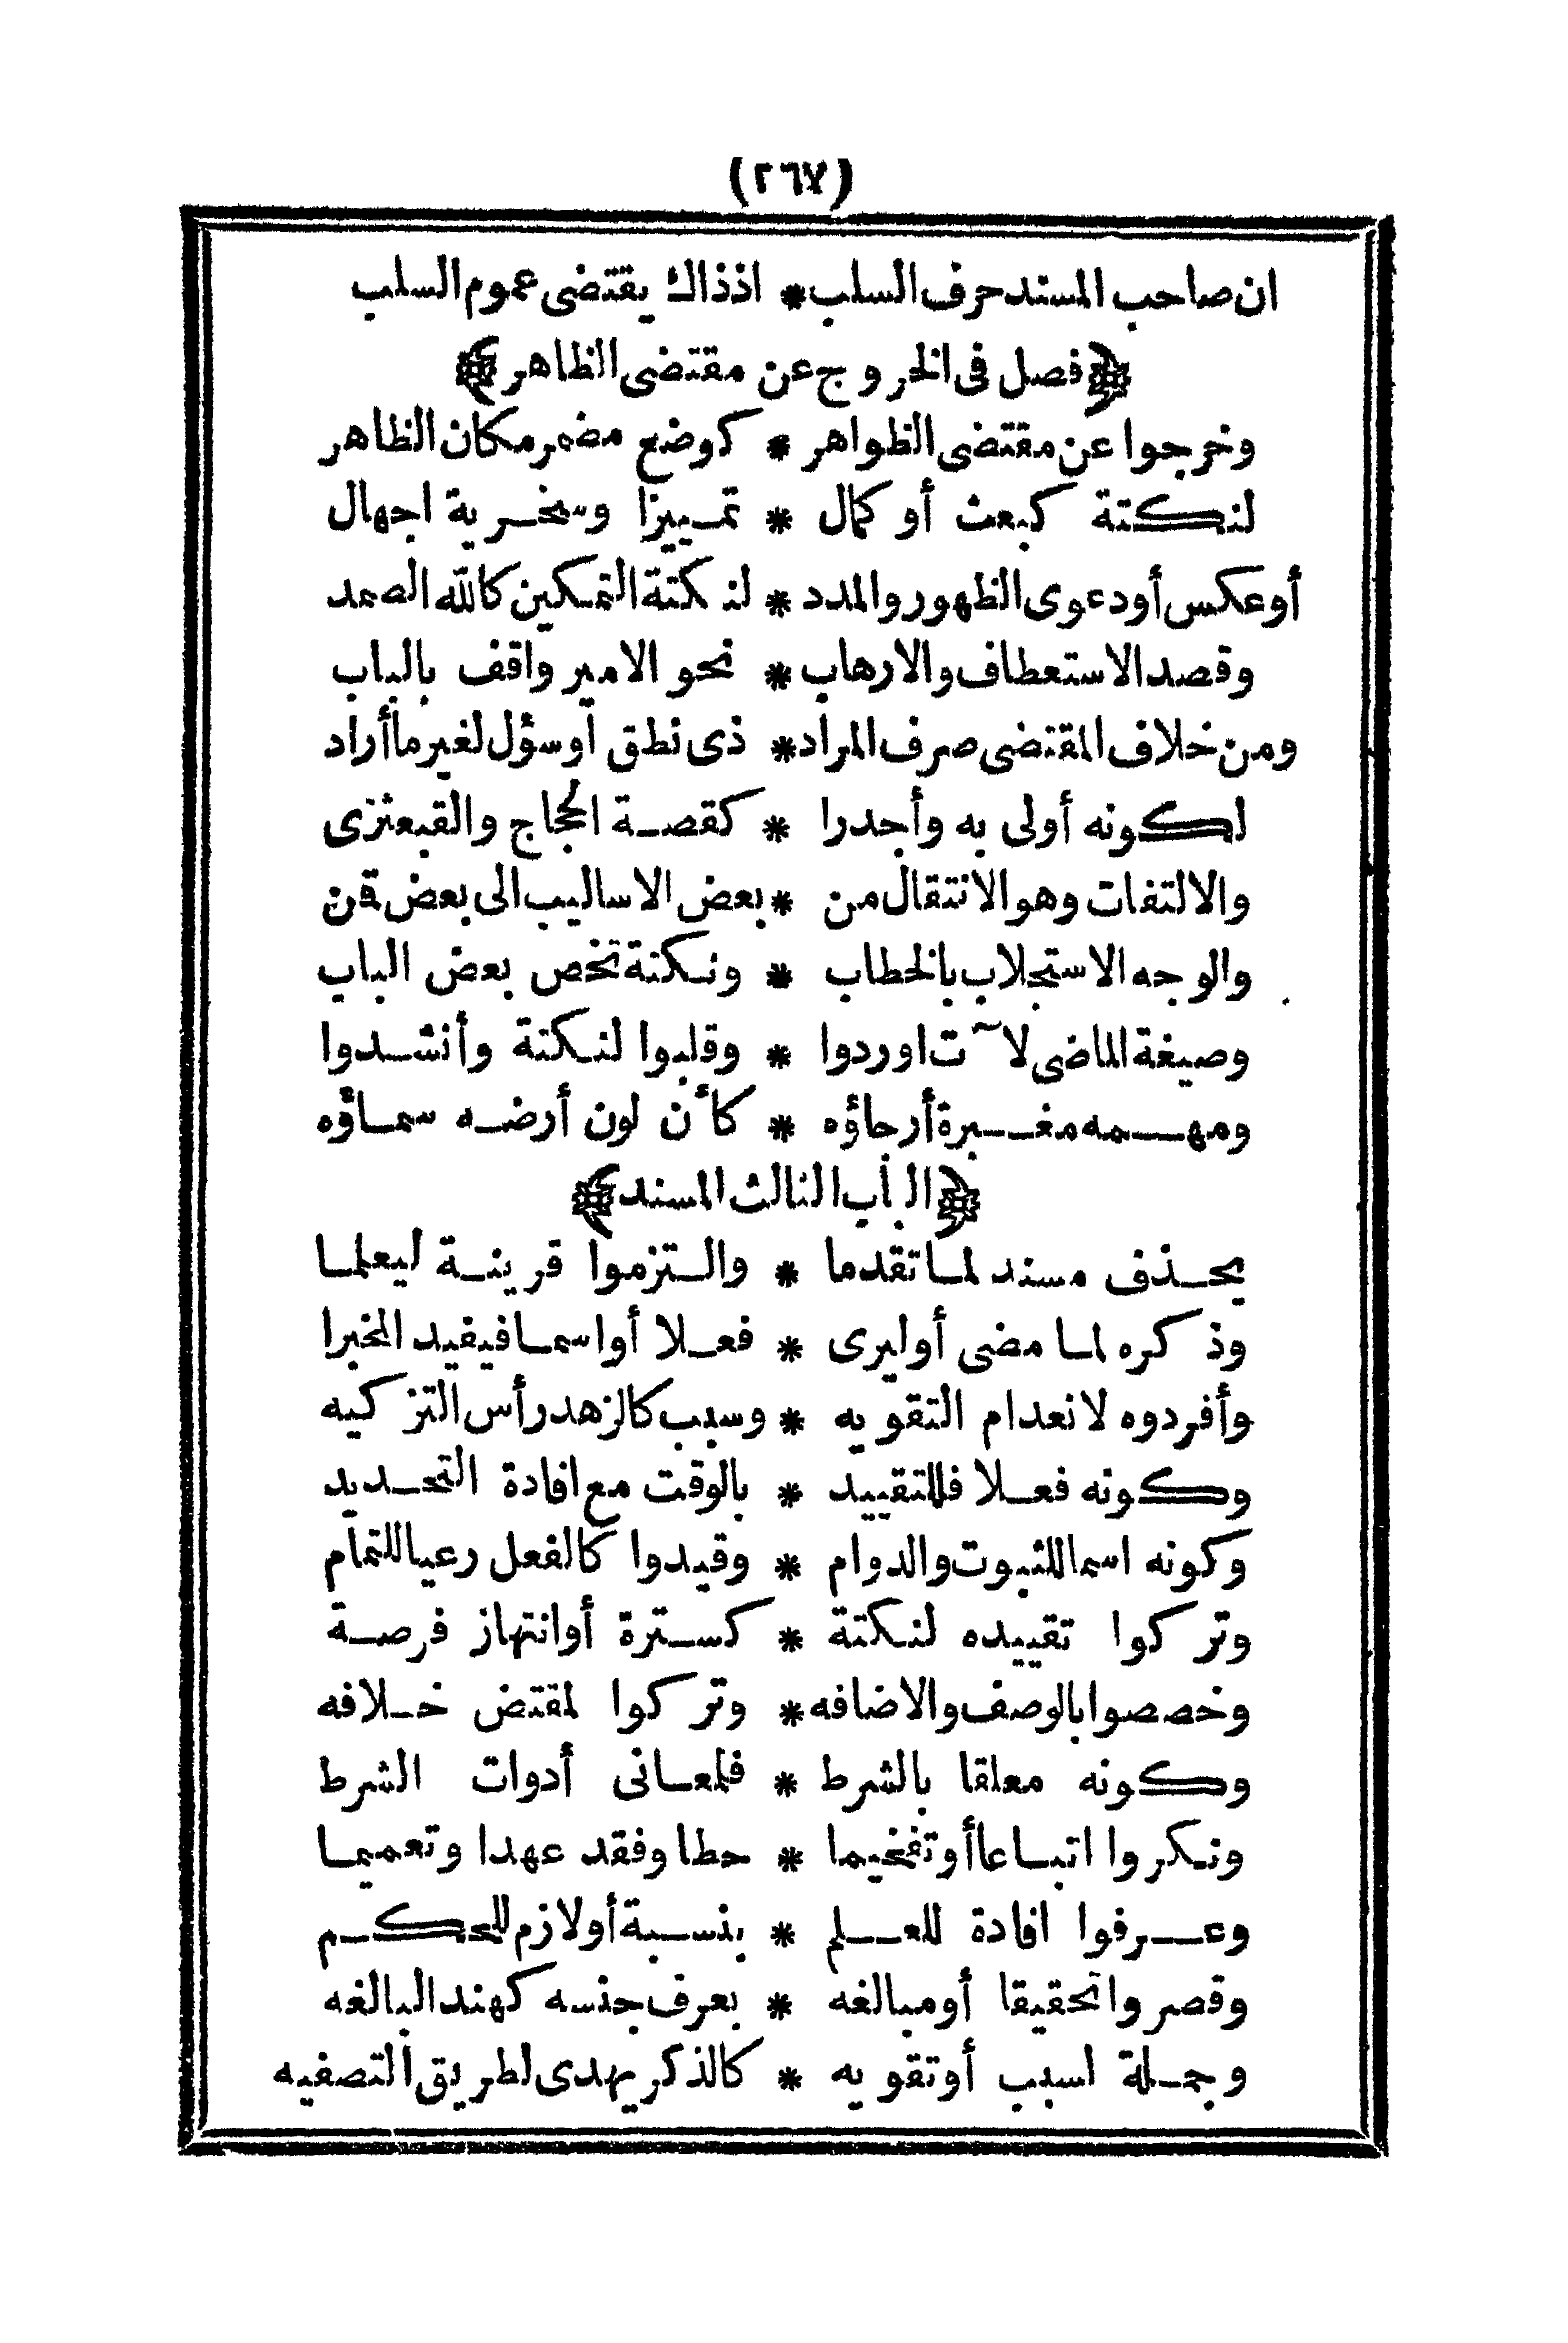 (٢٦٧)
ان صاحب المسند حرف السلب * اذذاك يقتضى عموم السلب
﴿فصل فى الخروج عن مقتضى الظاهر﴾
وخرجوا عن مقتضى الظواهر * كوضع مضمر مكان الظاهر
لنكتة كبعث أو كمال * تمييزا وسخرية اجهال
أو عكس أو دعوى الظهور والمدد * لنكتة التمكين كالله الصمد
وقصد الاستعطاف والارهاب * نحو الامير واقف بالباب
ومن خلاف المقتضى صرف المراد * ذى نطق او سؤل لغير ما أراد
لكونه أولى به وأجدرا * كقصة الحجاج والقبعثرى
والالتفات وهو الانتقال من * بعض الاساليب الى بعض قمن
والوجه الاستجلاب بالخطاب * ونكتة تخص بعض الباب
وصيغة الماضى لا~ت اوردوا * وقلبوا لنكتة وأنشدوا
ومهمه مغبرة أرجاؤه * كأن لون أرضه سماؤه
﴿الباب الثالث المسند﴾
يحذف مسند لما تقدما * والتزموا قرينة ليعلما
وذكره لما مضى أو ليرى * فعلا أو اسما فيفيد المخبرا
وأفردوه لانعدام التقويه * وسبب كالزهد رأس التزكيه
وكونه فعلا فللتقييد * بالوقت مع افادة التحديد
وكونه اسما للثبوت والدوام * وقيدوا كالفعل رعيا للتمام
وتركوا تقييده لنكتة * كسترة أو انتهاز فرصة
وخصصوا بالوصف والاضافه * وتركوا لمقتض خلافه
وكونه معلقا بالشرط * فلمعانى أدوات الشرط
ونكروا اتباعا أو تفخيما * حطا وفقد عهدا وتعميما
وعرفوا افادة للعلم * بنسبة أو لازم للحكم
وقصروا تحقيقا أو مبالغه * بعرف جنسه كهند البالغه
وجملة لسبب أو تقويه * كالذكر يهدى لطريق التصفيه